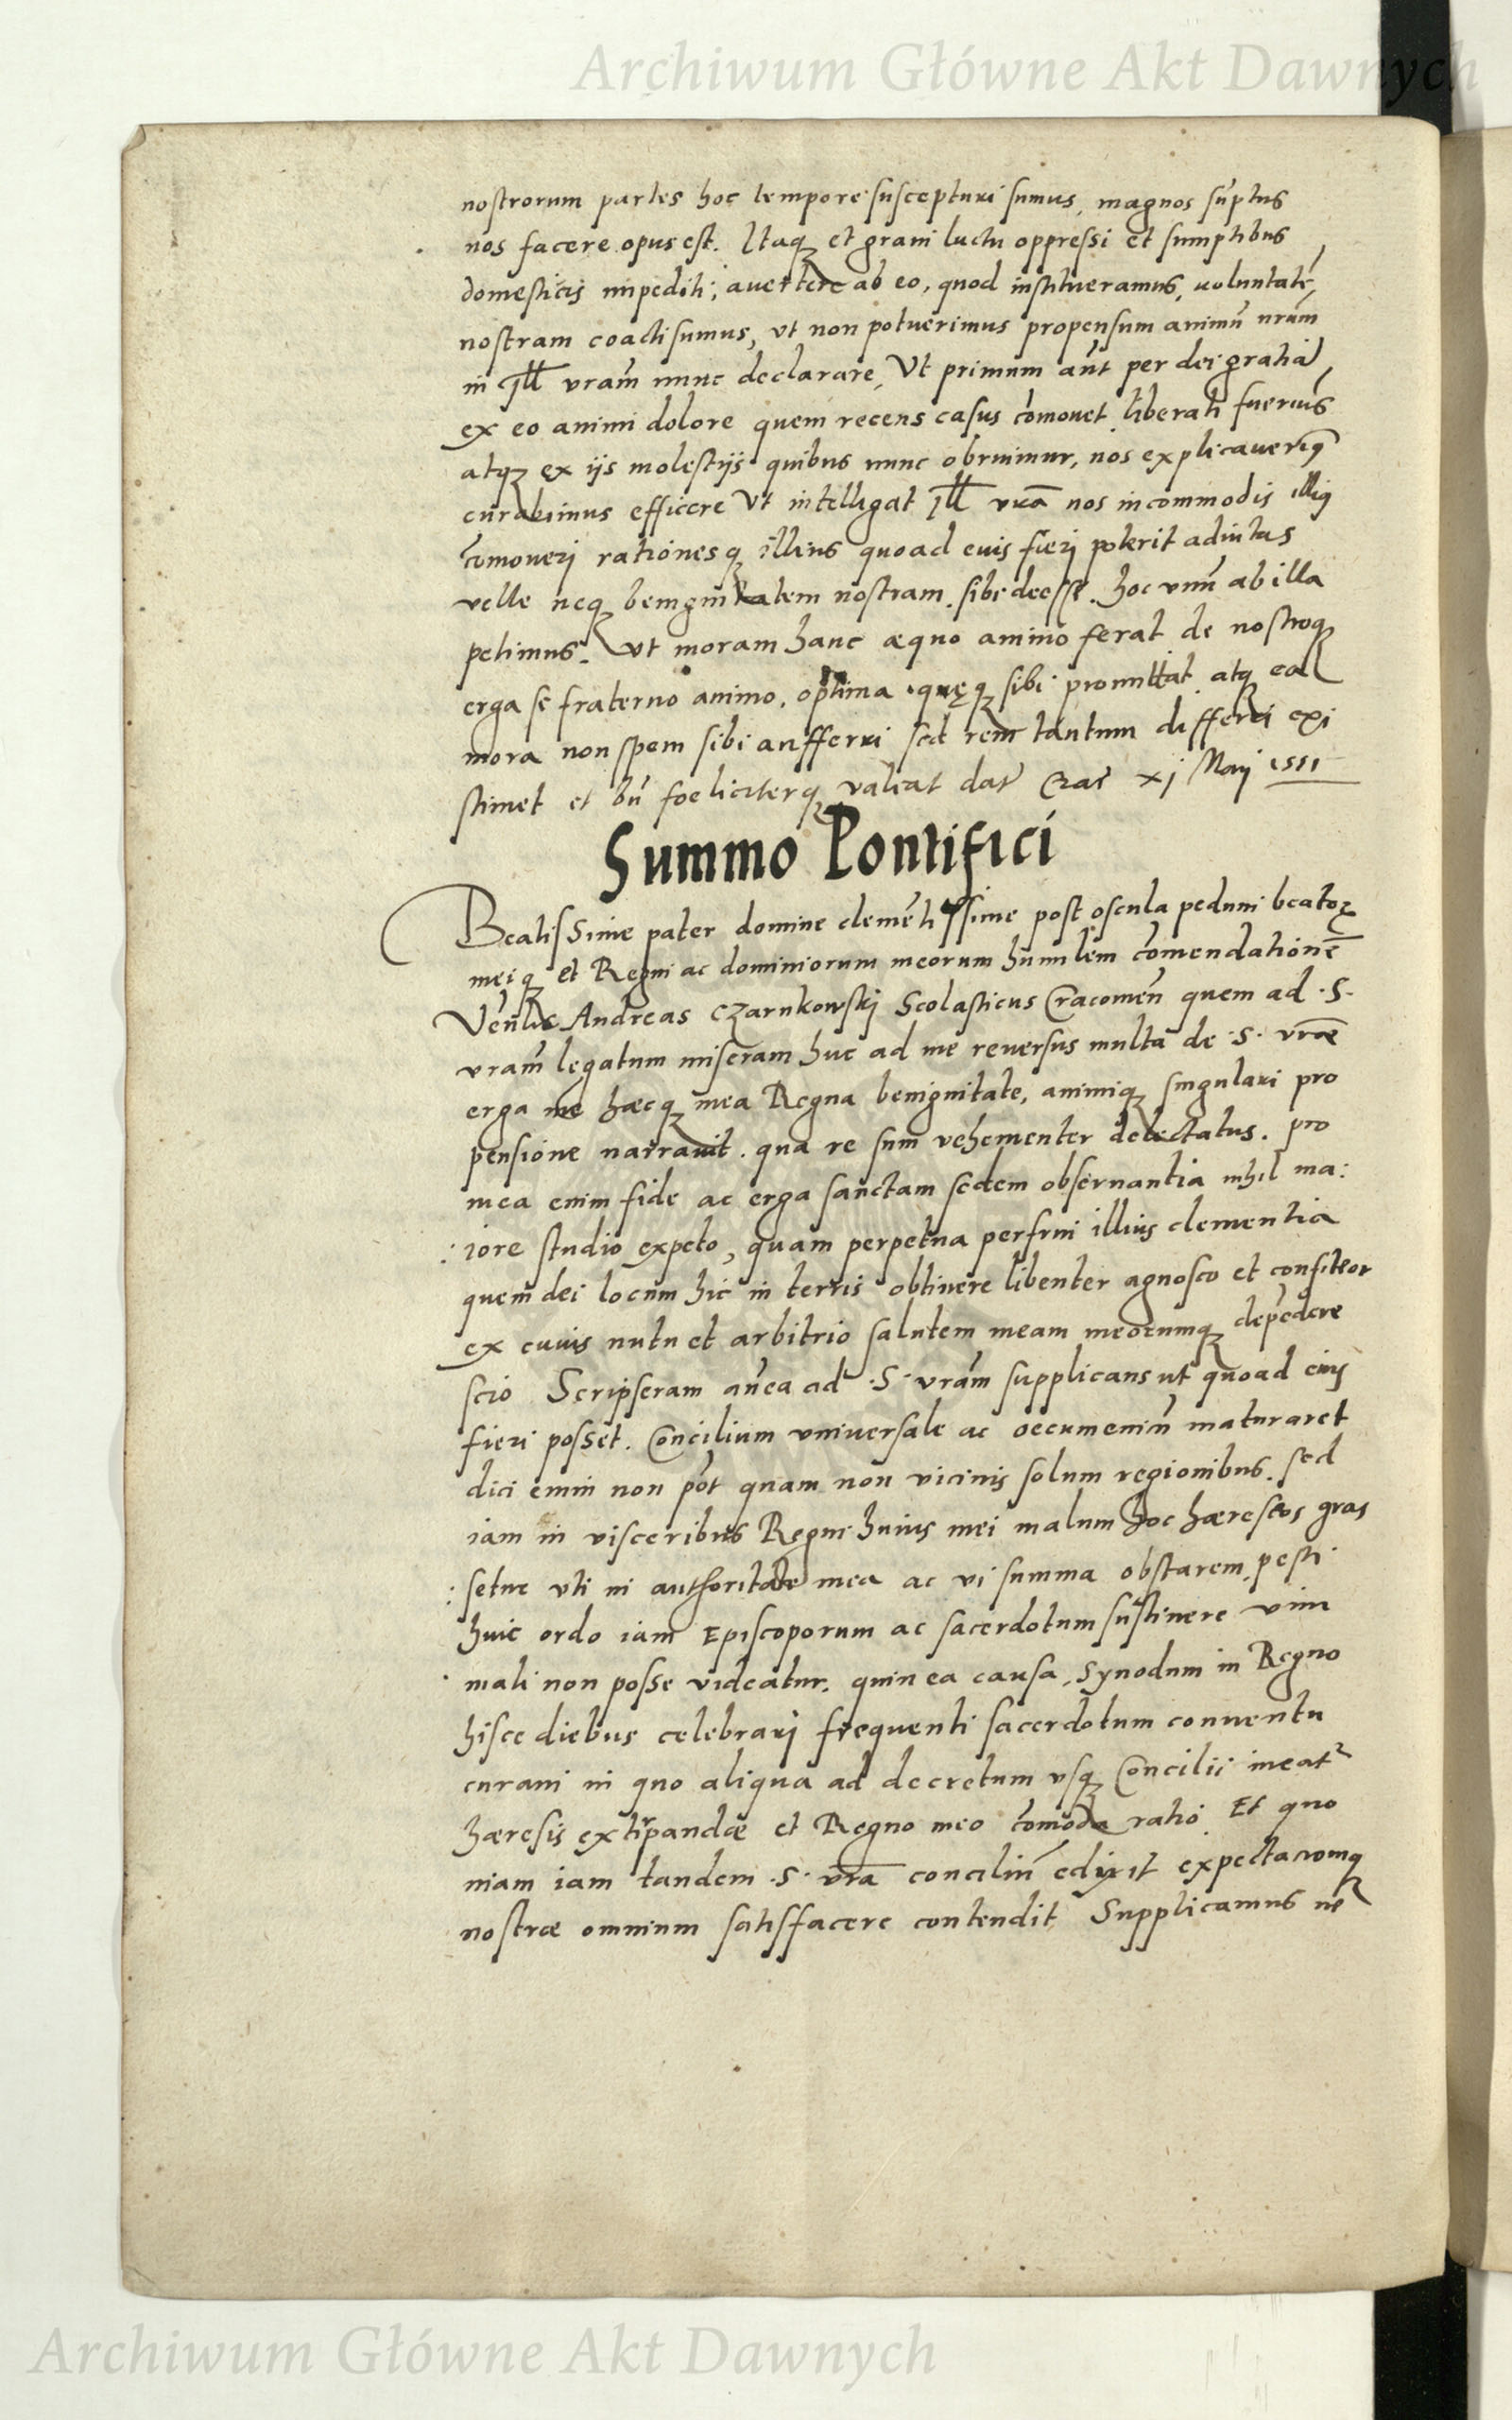 Archiwum Główne Akt Dawnych
nostrorum partes hoc tempore suscepturi sumus, magnos sūptus
nos facere opus est. Itaqꝫ et graui luctu oppressi et sumptibus
domesticis impediti, auertere ab eo, quod institueramus, voluntatē
nostram coacti sumus, vt non potuerimus propensum animū nr̄um
in Ill vram̄ nunc declarare, Vt primum aūt per dei gratiā
ex eo animi dolore quem recens casus com̄ouet liberati fuerim9
atqꝫ ex ijs molestijs quibus nunc obruimur, nos explicauerimꝫ
curabimus efficere Vt intelligat Ill vrā nos incommodis illi9
com̄oueri rationesqꝫ illius quoad eius fieri poterit adiutas
velle neqꝫ benignitatem nostram sibi deesse. hoc vnū ab illa
petimus. vt moram hanc æquo animo ferat de nostroqꝫ
erga se fraterno animo, optima quęqꝫ sibi promittat atqꝫ ea
mora non spem sibi aufferri sed rem tantum differri exi
stimet et bn̄ foeliciterqꝫ valeat dat Crac xj Maij 1551
Summo Pontifici
Beatissime pater domine clemētissime post oscula pedum beatoꝝ
meiqꝫ et Regni ac dominiorum meorum humilem com̄endationē
Ven̄lis Andreas Czarnkowskj Scolasticus Cracouien̄ quem ad .S.
vram̄ legatum miseram huc ad me reuersus multa de .S. vrǣ
erga me hæcqꝫ mea Regna benignitate, animiqꝫ singulari pro
pensione narrauit. qua re sum vehementer delectatus. pro
mea enim fide ac erga sanctam sedem obseruantia nihil ma:
:iore studio expeto, quam perpetua perfrui illius clementia
quem dei locum hic in terris obtinere libenter agnosco et confiteor
ex cuius nutu et arbitrio salutem meam meorumqꝫ depēdere
scio Scripseram an̄ea ad .S. vram̄ supplicans ut quoad eius
fieri posset. Concilium vniuersale ac oecumenicū maturaret
dici enim non pōt quam non vicinis solum regionibus. sed
iam in visceribus Regni huius mei malum hoc hæreseos gras
:setur vti ni authoritate mea ac vi summa obstarem pesti
huic ordo iam Episcoporum ac sacerdotum sustinere vim
mali non posse videatur. quin ea causa, synodum in Regno
hisce diebus celebrari frequenti sacerdotum conuentu
curaui in quo aliqua ad decretum vsqꝫ Concilii ineat̃
hæresis extirpandæ et Regno meo com̄oda ratio. Et quo
niam iam tandem .S. vrā conciliū edixit expectacioniqꝫ
nostræ omnium satisfacere contendit Supplicamus ne
Archiwum Główne Akt Dawnych